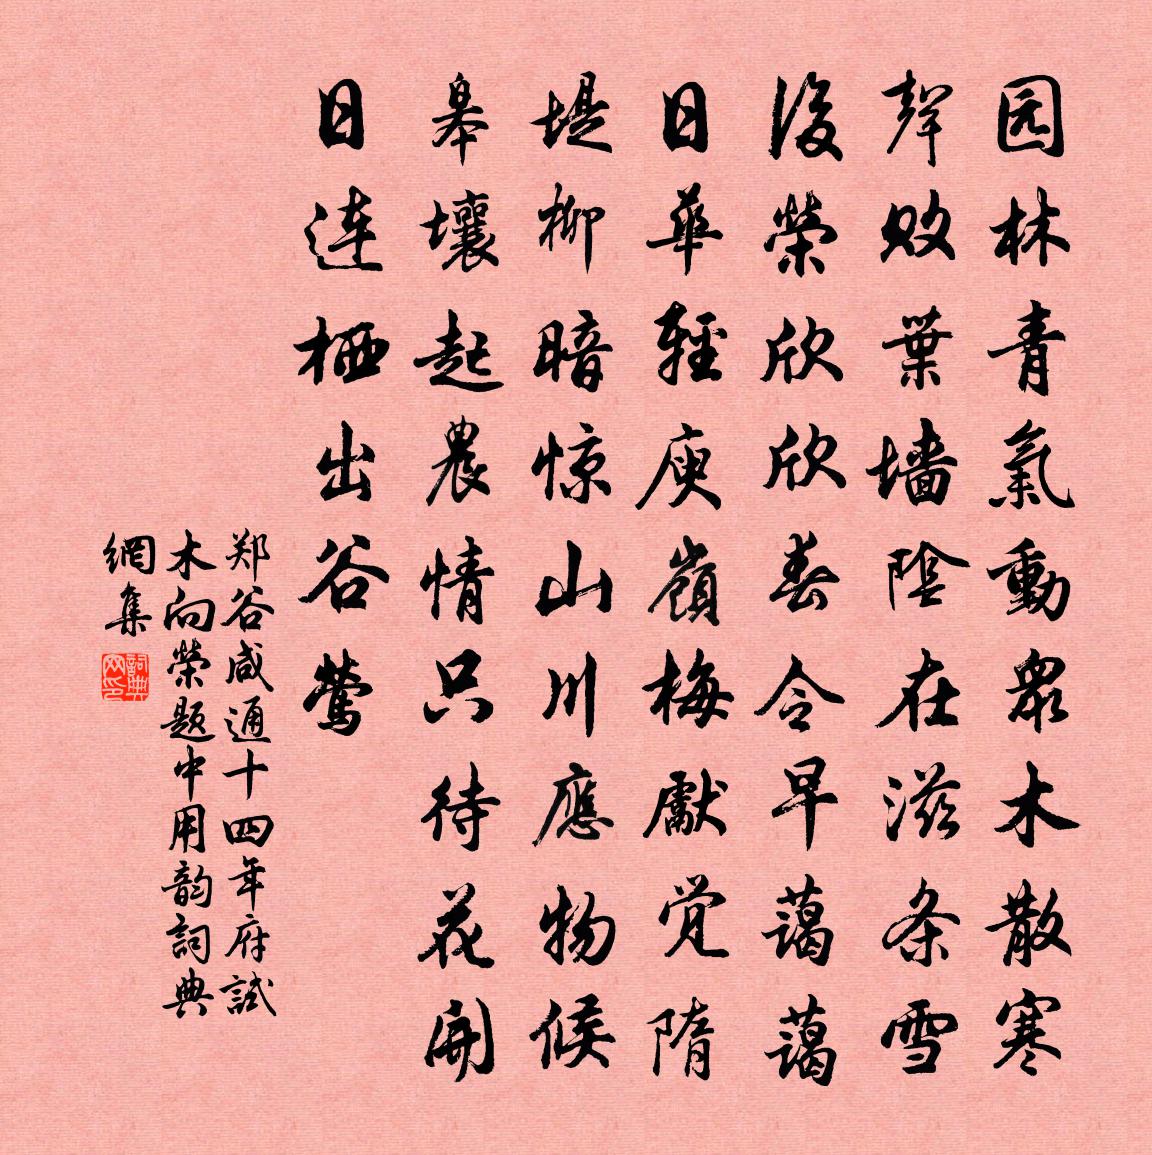 园林青氣動眾木散寒
聲敗葉墙陰在滋条雪
後榮欣欣春令早藹藹
日華輕庾嶺梅獻觉隋
堤柳暗惊山川應物候
皋壤起農情只待花開
日連栖出谷莺
郑谷咸通十四年府試
木向榮题中用韵詞典
網集
詞典
网印